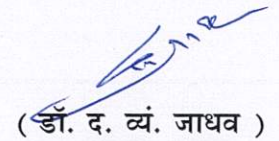 ( डॉ. द. व्यं. जाधव )